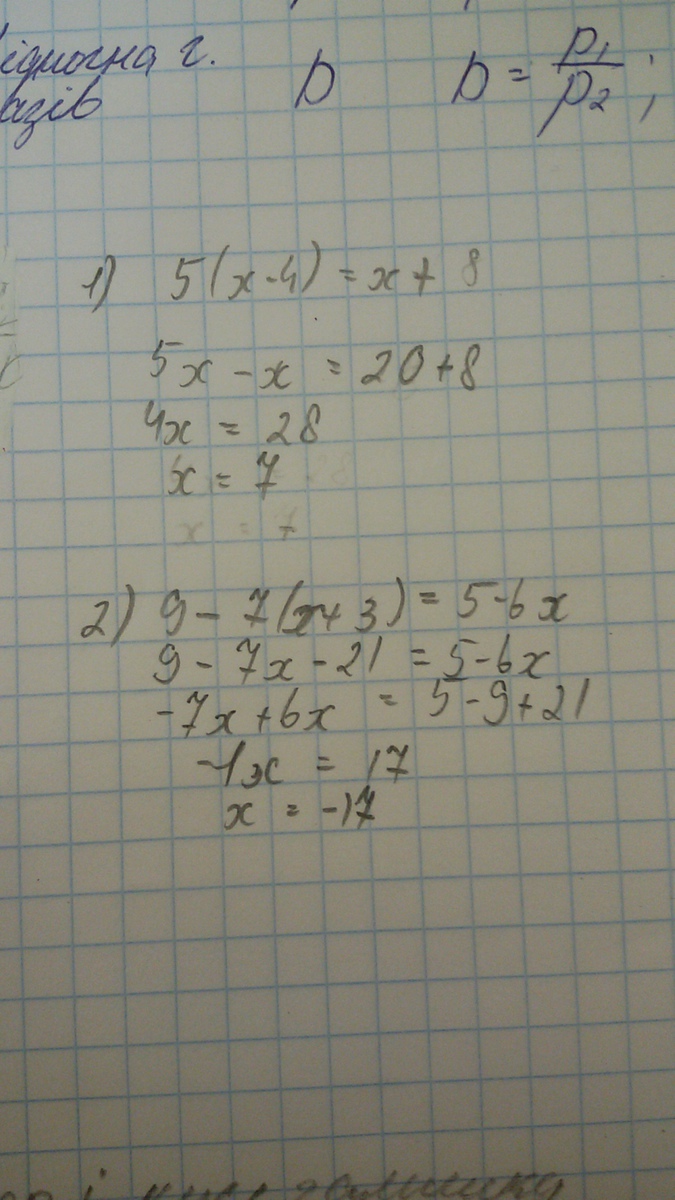 D D = p₁/p₂ ;
1) 5(x-4) = x + 8
5x - x = 20+8
4x = 28
x = 7
x = 7
2) 9 - 7(x+3) = 5-6x
9 - 7x - 21 = 5-6x
-7x + 6x = 5-9+21
-1x = 17
x = -17